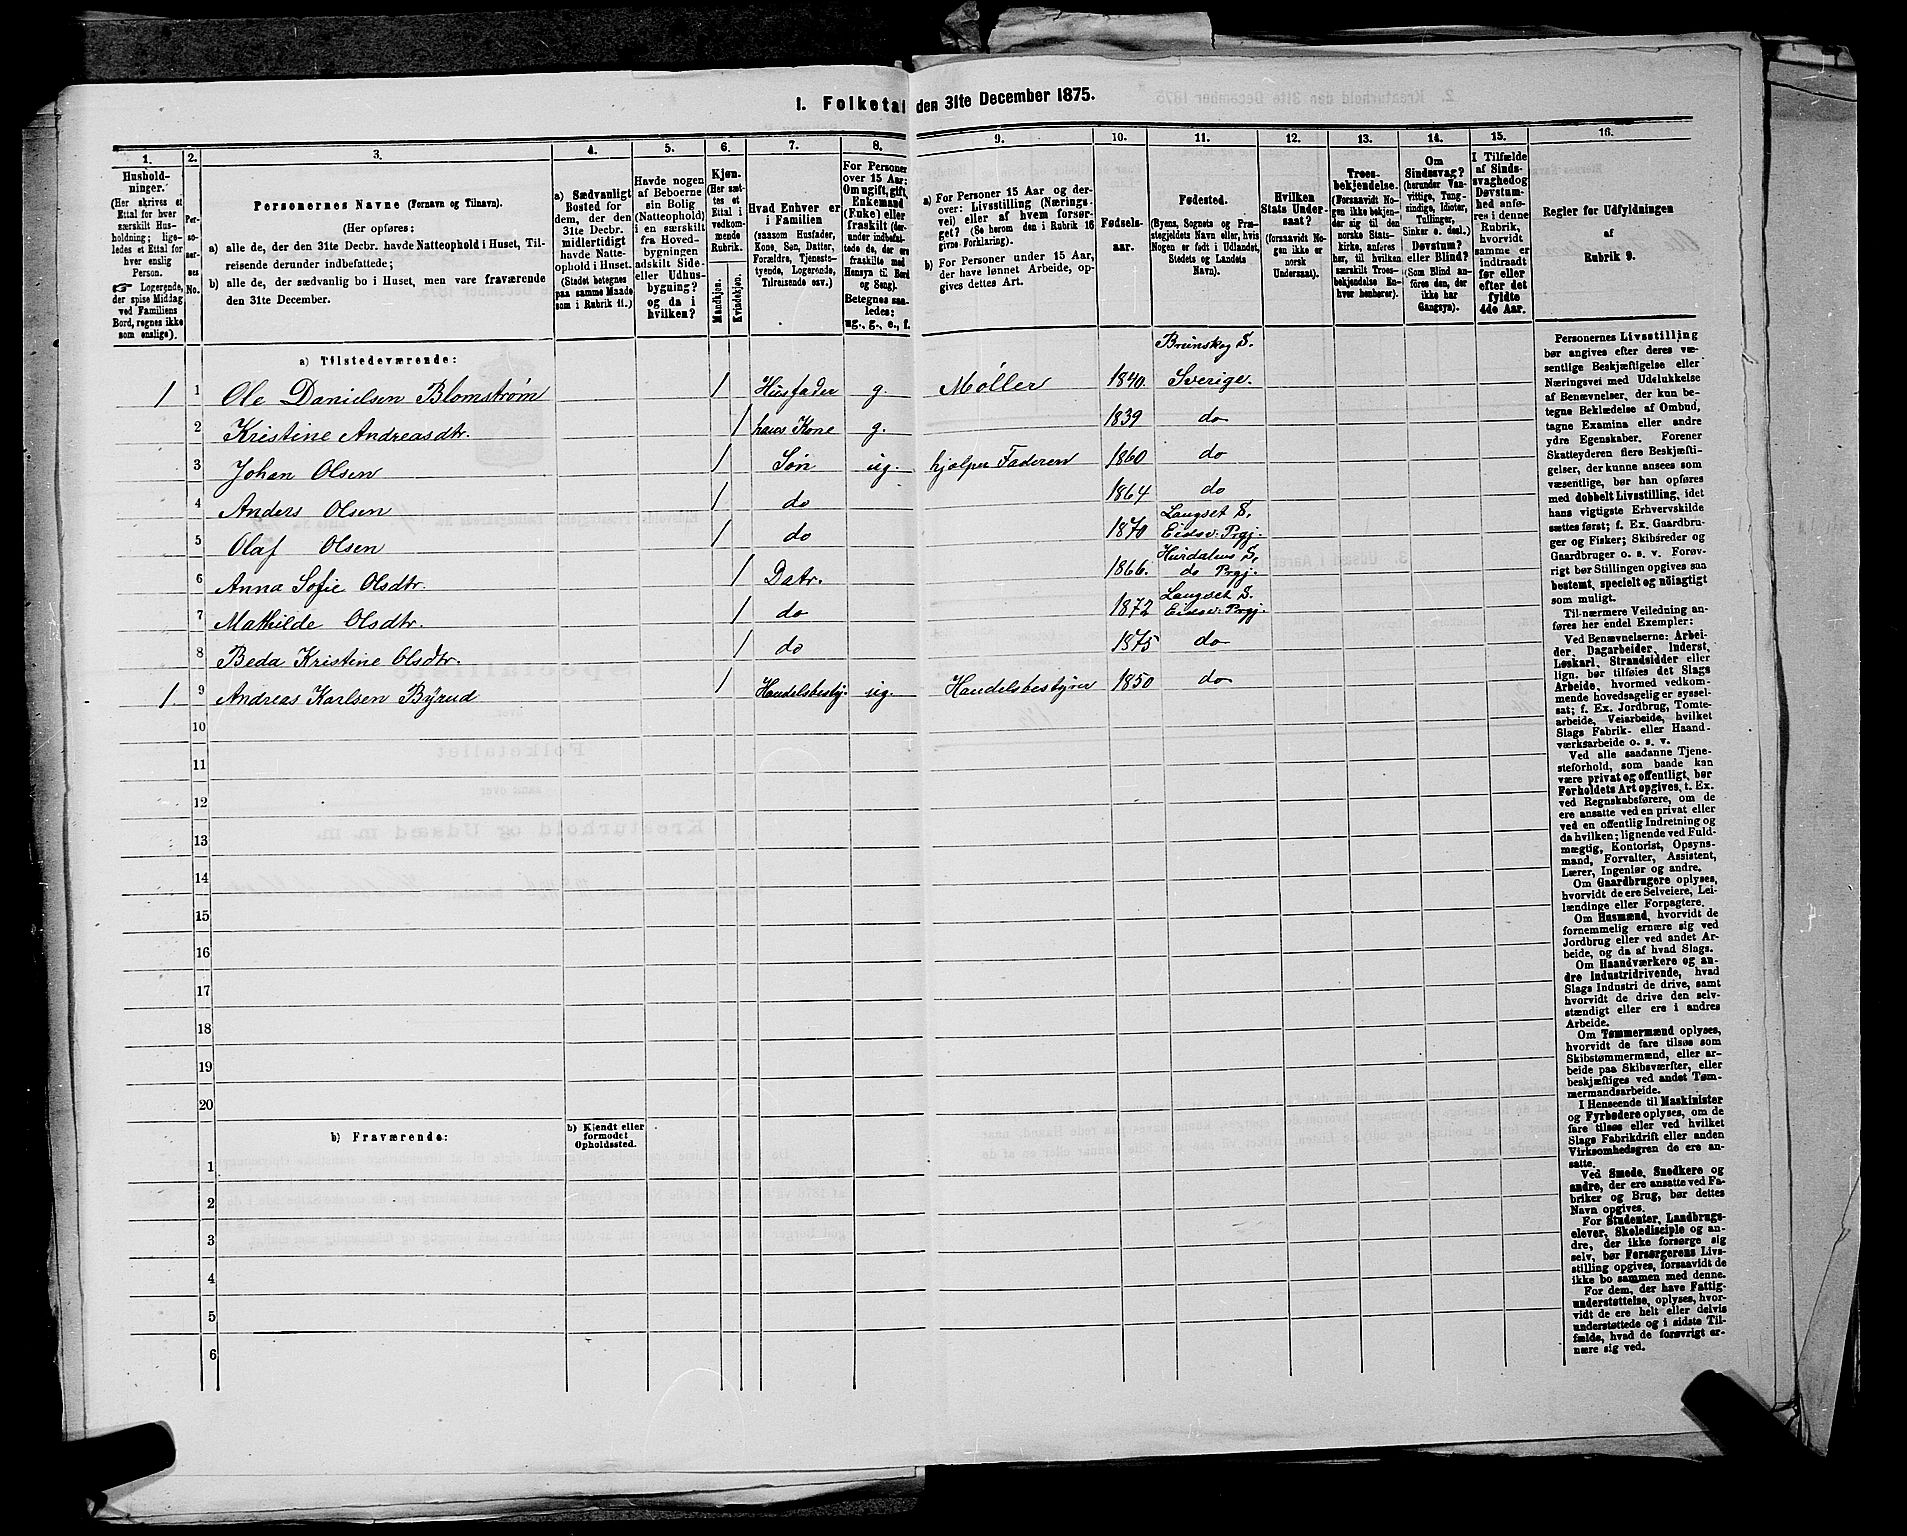 I. Folketal den 31te December 1875.
1. 2. 3. 4. 5. 6. 7. 8. 9. 10. 11. 12. 13. 14. 15. 16.
Hushold-
ninger.
(Her skrives et
Ettal for hver
særskilt Hus-
holdning; lige-
ledes et Ettal for
hver enslig
Person.
☞ Logerende,
der spise Middag
ved Familiens
Bord, regnes ikke
som enslige).
Per-
so-
ner-
nes
No.
Personernes Navne (Fornavn og Tilnavn).
(Her opføres:
a) alle de, der den 31te Decbr. havde Natteophold i Huset, Til-
reisende derunder indbefattede;
b) alle de, der sædvanlig bo i Huset, men vare fraværende
den 31te December.
a) Sædvanligt
Bosted for
dem, der den
31te Decbr.
midlertidigt
havde Natte-
ophold i Huset.
(Stedet betegnes
paa samme Maade
som i Rubrik 11.)
Havde nogen
af Beboerne
sin Bolig
(Natteophold)
i en særskilt
fra Hoved-
bygningen
adskilt Side-
eller Udhus-
bygning?
og da i
hvilken?
Kjøn.
(Her sæt-
tes et
Ettal i
vedkom-
mende
Rubrik.
Mandkjøn.
Kvindekjøn.
Hvad Enhver er
i Familien
(saasom Husfader,
Kone, Søn, Datter,
Forældre, Tjenests-
tyende, Logerende,
Tilreisende osv.)
For Personer
over 15 Aar:
Om ugift, gift,
Enkemand
(Enke) eller
fraskilt (der-
under indbefat-
tede de, der ere
fraskilte med
Hensyn til Bord
og Seng).
Betegnes saa-
ledes:
ug., g., e., f.
a) For Personer 15 Aar og der-
over: Livsstilling (Nærings-
vei) eller af hvem forsør-
get? (Se herom den i Rubrik 16
givne Forklaring).
b) For Personer under 15 Aar,
der have lønnet Arbeide, op-
gives dettes Art.
Fødsels-
aar.
Fødested.
(Byens, Sognets og Præ-
stegjeldets Navn eller, hvis
Nogen er født i Udlandet,
Stedets og Landets
Navn).
Hvilken
Stats Under-
saat?
(forsaavidt No-
gen ikke er
norsk
Undersaat).
Troes-
bekjendelse.
(Forsaavidt No-
gen ikke bekjen-
der sig til den
norske Stats-
kirke, anføres
her, til hvilken
særskilt Troes-
bekjendelse En-
hver henhører).
Om
Sindssvag?
(herunder Van-
vittige, Tung-
sindige, Idioter,
Tullinger,
Sinker o. desl.)
Døvstum?
eller Blind?
(Som Blind an-
føres den, der
ikke har
Gangsyn).
I Tilfælde
af Sinds-
svaghed og
Døvstum-
hed anfø-
res i denne
Rubrik,
hvorvidt
samme er
indtraadt
før eller
efter det
fyldte
4de Aar.
Regler for Udfyldningen
af
Rubrik 9.
a) Tilstedeværende:
Brunskog S.
1 1 Ole Danielsen Blomstrøm 1 Husfader g. Møller 1840. Sverige.
2 Kristine Andreasdtr. 1 hans Kone g. 1839 do
3 Johan Olsen 1 Søn ug. hjælper Faderen 1860 do
4 Anders Olsen 1 do 1864 do
Langset S.
5 Olaf Olsen 1 do 1870 Eidsv: Prgj.
Hurdalens S.
6 Anna Sofie Olsdtr. 1 Datr. 1866. do Prgj.
Langset S.
7 Mathilde Olsdtr. 1 do 1872 Eidsv: Prgj.
8 Beda Kristine Olsdtr. 1 do 1875 do
1. 9 Andreas Karlsen Byrud 1 Handelsbesty. ug. Handelsbestyrer 1850 do
10
11
12
13
14
15
16
17
18
19
20
b) Fraværende:
b) Kjendt eller
formodet
Opholdssted.
1
2
3
4
5
6
Personernes Livsstilling
bør angives efter deres væ-
sentlige Beskjæftigelse eller
Næringsvei med Udelukkelse
af Benævnelser, der kun be-
tegne Beklædelse af Ombud,
tagne Examina eller andre
ydre Egenskaber. Forener
Skatteyderen flere Beskjæfti-
gelser, der kunne ansees som
væsentlige, bør han opføres
med dobbelt Livsstilling, idet
hans vigtigste Erhvervskilde
sættes først; f. Ex. Gaardbru-
ger og Fisker; Skibsreder og
Gaardbruger o. s. v. Forøv-
rigt bør Stillingen opgives saa
bestemt, specielt og nøiagtigt
som muligt.
Til nærmere Veiledning an-
føres her endel Exempler:
Ved Benævnelserne: Arbei-
der, Dagarbeider, Inderst,
Løskarl, Strandsidder eller
lign. bør tilføies det Slags
Arbeide, hvormed vedkom-
mende hovedsagelig er syssel-
sat; f. Ex. Jordbrug, Tomte-
arbeide, Veiarbeide, hvilket
Slags Fabrik- eller Haand-
værksarbeide o. s. v.
Ved alle saadanne Tjene-
steforhold, som baade kan
være privat og offentligt, bør
Forholdets Art opgives, t. Ex.
ved Regnskabsførere, om de
ere ansatte ved en privat eller
ved en offentlig Indretning og
da hvilken; lignende ved Fuld-
mægtig, Kontorist, Opsyns-
mand, Forvalter, Assistent,
Lærer, Ingeniør og andre.
Om Gaardbrugere oplyses,
hvorvidt de ere Selveiere, Lei-
lændinge eller Forpagtere.
Om Husmænd, hvorvidt de
fornemmelig ernære sig ved
Jordbrug eller ved andet Ar-
beide, og da af hvad Slags.
Om Haandværkere og an-
dre Industridrivende, hvad
Slags Industri de drive, samt
hvorvidt de drive den selv-
stændigt eller ere i andres
Arbeide.
Om Tømmermænd oplyses,
hvorvidt de fare tilsøs som
Skibstømmermænd, eller ar-
beide paa Skibsværfter, eller
beskjæftiges ved andet Tøm-
mermandsarbeide.
I Henseende til Maskinister
og Fyrbødere oplyses, om de
fare tilsøs eller ved hvilket
Slags Fabrikdrift eller anden
Virksomhedsgren de ere an-
satte.
Ved Smede, Snedkere og
andre, der ere ansatte ved Fa-
briker og Brug, bør dettes
Navn opgives.
For Studenter, Landbrugs-
elever, Skoledisciple og an-
dre, der ikke forsørge sig
selv, bør Forsørgerens Livs-
stilling opgives, forsaavidt de
ikke bo sammen med denne.
For dem, der have Fattig-
understøttelse, oplyses, hvor-
vidt de ere helt eller delvis
understøttede og i sidste Til-
fælde, hvad de forøvrigt er-
nære sig ved.